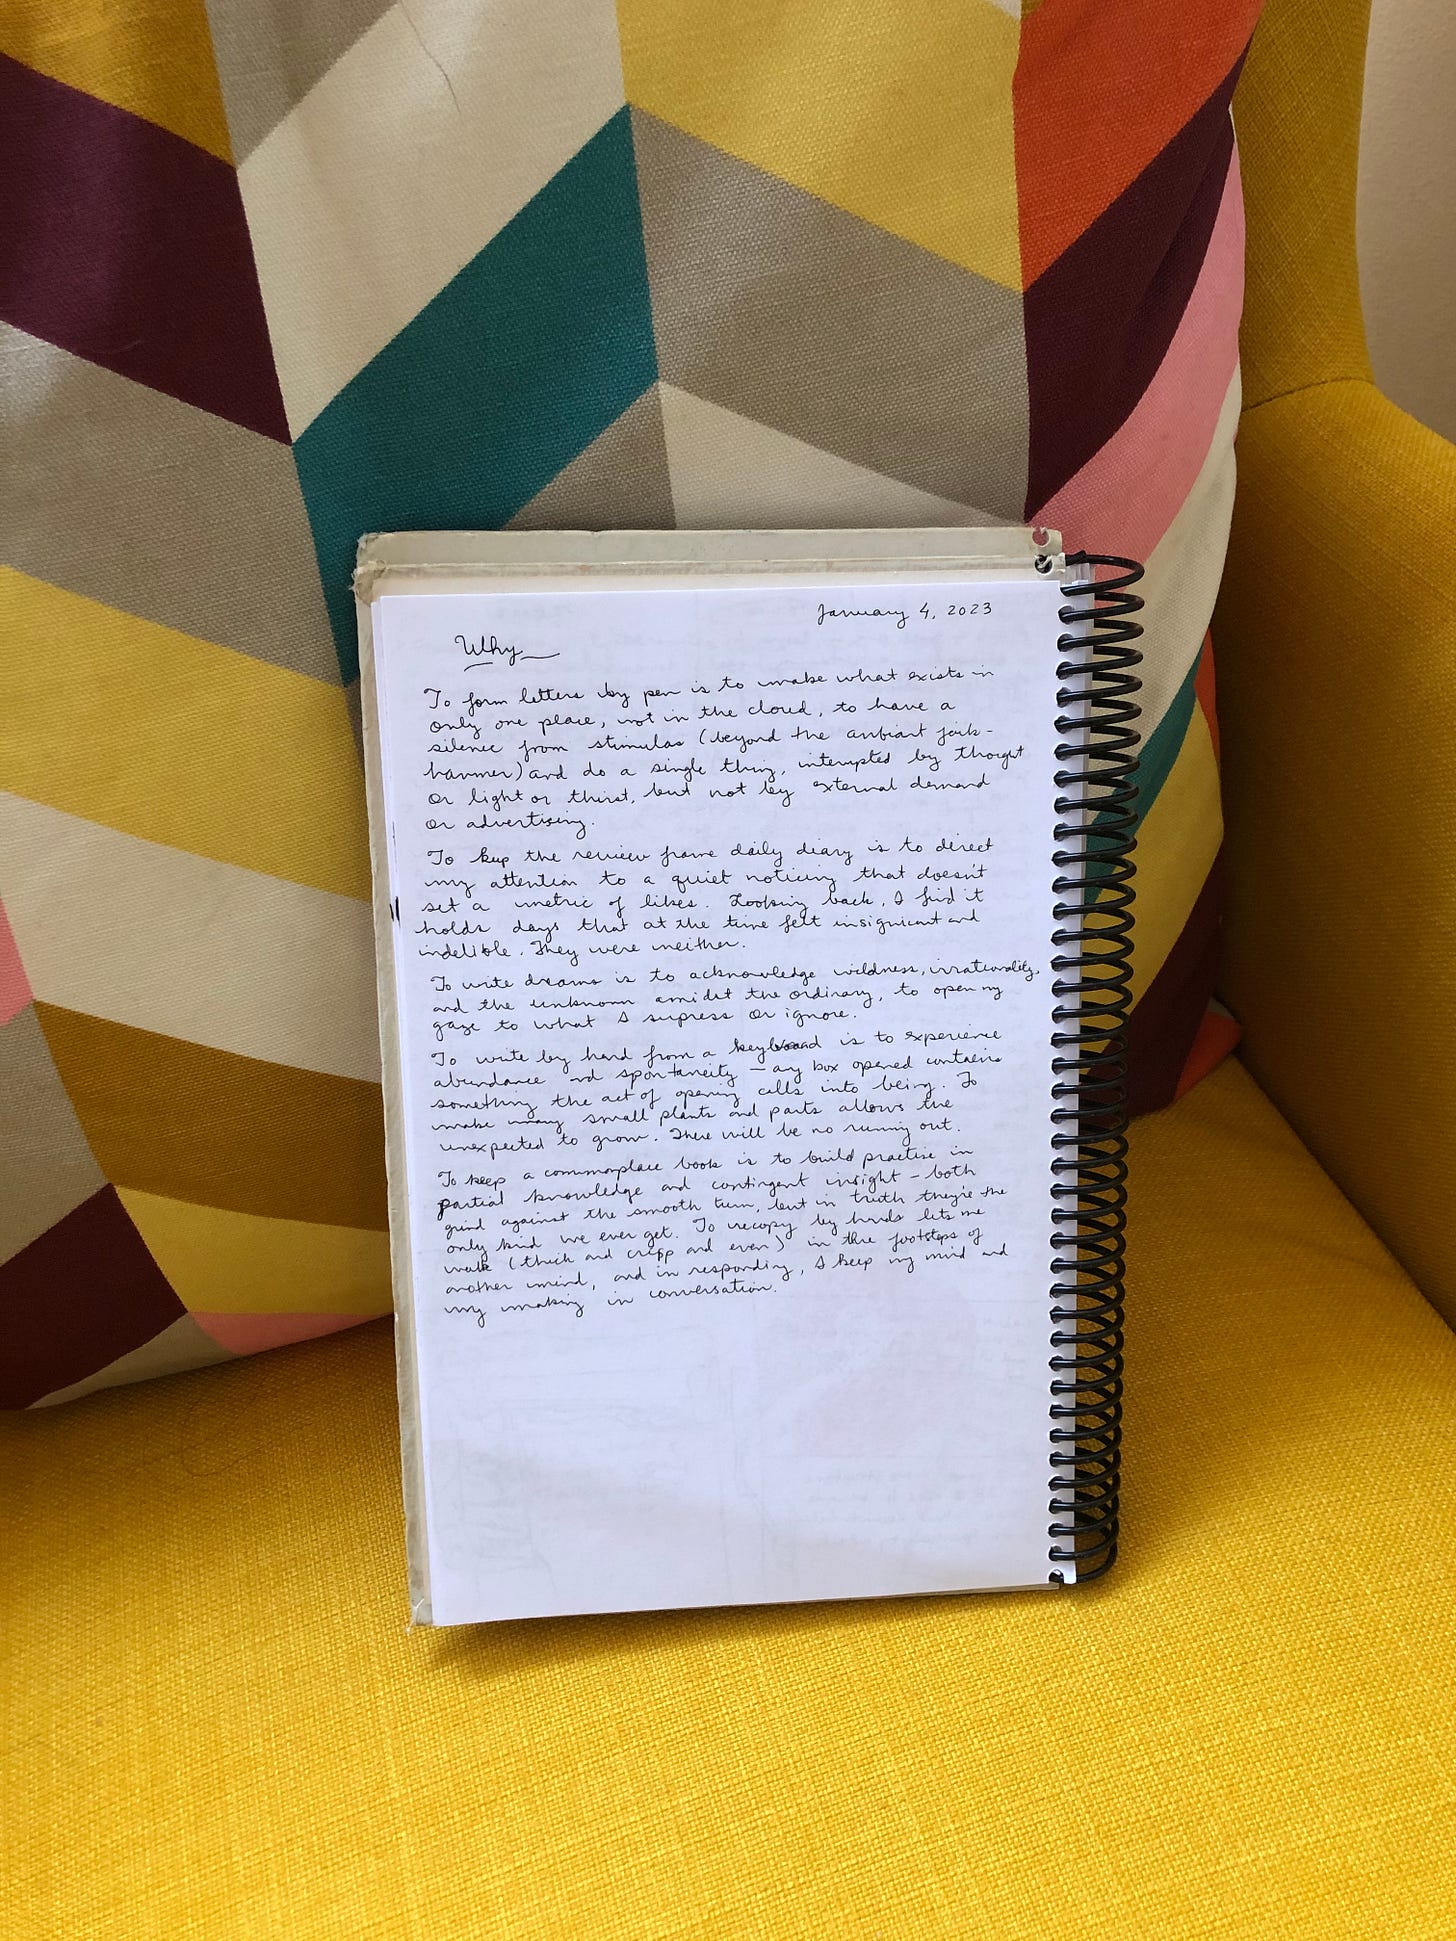 January 4, 2023
Why
To form letters by pen is to make what exists in
only one place, not in the cloud, to have a
silence from stimulus (beyond the ambient jack-
hammer) and do a single thing, interrupted by thought
or light or thirst, but not by external demand
or advertising.
To keep the review frame daily diary is to direct
my attention to a quiet noticing that doesn't
set a metric of likes. Looking back, I find it
holds days that at the time felt insignificant and
indelible. They were neither.
To write dreams is to acknowledge wildness, irrationality,
and the unknown amidst the ordinary, to open my
gaze to what I supress or ignore.
To write by hand from a keyboard is to experience
abundance and spontaneity – any box opened contains
something the act of opening calls into being. To
make many small plants and parts allows the
unexpected to grow. There will be no running out.
To keep a commonplace book is to build practise in
partial knowledge and contingent insight – both
grind against the smooth turn, but in truth they're the
only kind we ever get. To recopy by hands lets me
walk (thick and crisp and even) in the footsteps of
another mind, and in responding, I keep my mind and
my making in conversation.